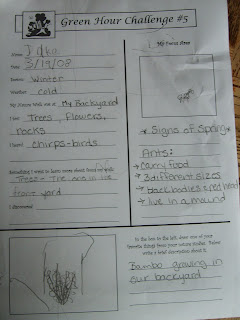 Green Hour Challenge #5
Name:
Date: 3/19/08
Season: Winter
Weather: cold
My Nature Walk was at My Backyard
I saw Trees, Flowers,
rocks
I heard chirps-birds
Something I want to learn more about from my walk:
Trees - The one in the
front yard
I discovered
My Focus Area
* Signs of Spring *
Ants:
* carry food
* 3 different sizes
* black bodies & red head
* live in a mound
In the box to the left, draw one of your
favorite things from your nature studies.
Write a brief description about it.
Bamboo growing in
our backyard